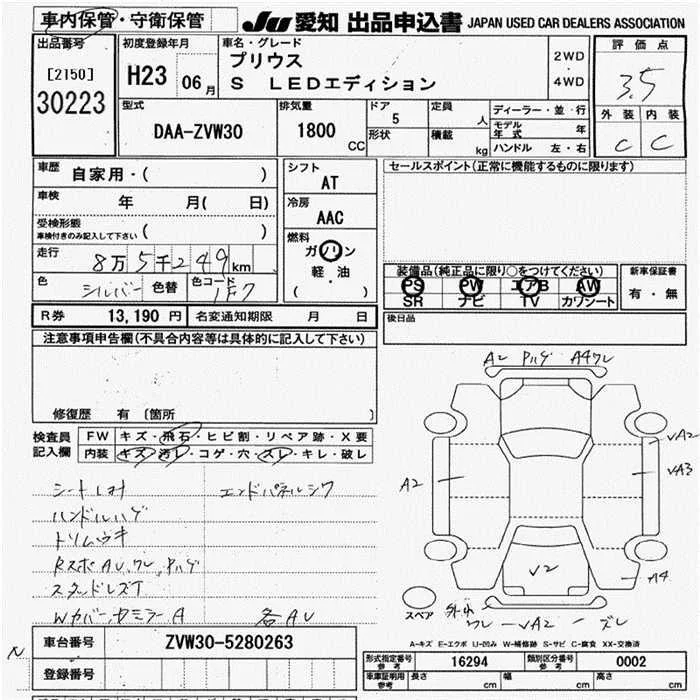 車内保管・守衛保管 JU 愛知 出品申込書 JAPAN USED CAR DEALERS ASSOCIATION
出品番号
[2150]
30223
初度登録年月
H23 06 月
車名・グレード
プリウス
S LEDエディション
2WD
・
4WD
評価点
3.5
外装 内装
C C
型式
DAA-ZVW30
排気量
1800 CC
ドア
5
形状
定員
人
積載
kg
ディーラー・並・行
モデル年式 年
ハンドル 左・右
車歴 自家用・( )
車検 年 月( 日)
受検形態
車検付きのみ記入して下さい ( )
走行 8万5千249km
色 シルバー 色替 色コード 1F7
シフト
AT
冷房
AAC
燃料
ガソリン
軽・油
( )
セールスポイント(正常に機能するものに限ります)
装備品(純正品に限り○をつけてください)
PS PW エアB AW
SR ナビ TV カワシート
新車保証書
有・無
R券 13,190 円 名変通知期限 月 日
後日品
注意事項申告欄(不具合内容等は具体的に記入して下さい)
修復歴 有 〔箇所 〕
検査員記入欄
FW キズ・飛石・ヒビ割・リペア跡・X要
内装 キズ・汚レ・コゲ・穴・スレ・キレ・破レ
シート エンドパネルシワ
ハンドルハゲ
トリムウキ
RスポAU,ワレ,ハゲ
Wカバー,ミラーA 各AU
A2 ハゲ A4ワレ
A2
A2
A3
A4
V2
スペア
ワレ VA2 ズレ
A-キズ E-エクボ U-凹み W-補修跡 S-サビ C-腐食 XX-交換済
N
車台番号 ZVW30-5280263
登録番号
形式指定番号参考 16294 類別区分番号参考 0002
車庫証明用参考 長さ cm 幅 cm 高さ cm